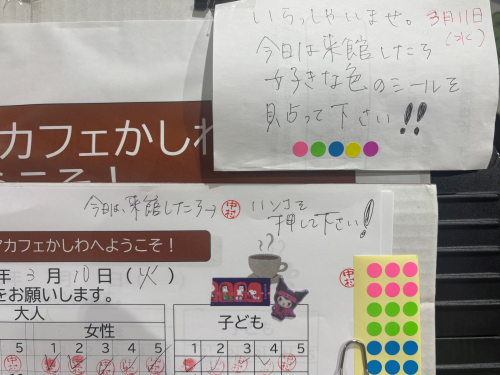 いらっしゃいませ。 3月11日
(水)
今日は来館したら
好きな色のシールを
貼って下さい!!
カフェかしわ
ようこそ!
今日は、来館したら→ 中村 ハンコを
押して下さい!
カフェかしわへようこそ!
年 3 月 10 日 (火)
をお願いします。
大人
女性
子ども
5 1 2 3 4 5 1 2 3 4 5